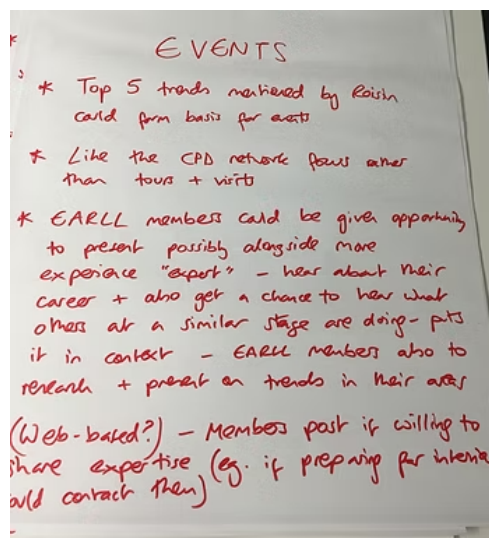 EVENTS
* Top 5 trends mentioned by Roisin
could form basis for events
* Like the CPD network focus rather
than tours + visits
* EARLL members could be given opportunity
to present possibly alongside more
experience "expert" - hear about their
career + also get a chance to hear what
others at a similar stage are doing - puts
it in context - EARLL members also to
research + present on trends in their areas
(Web-based?) - Members post if willing to
share expertise (eg. if preparing for
contact them)